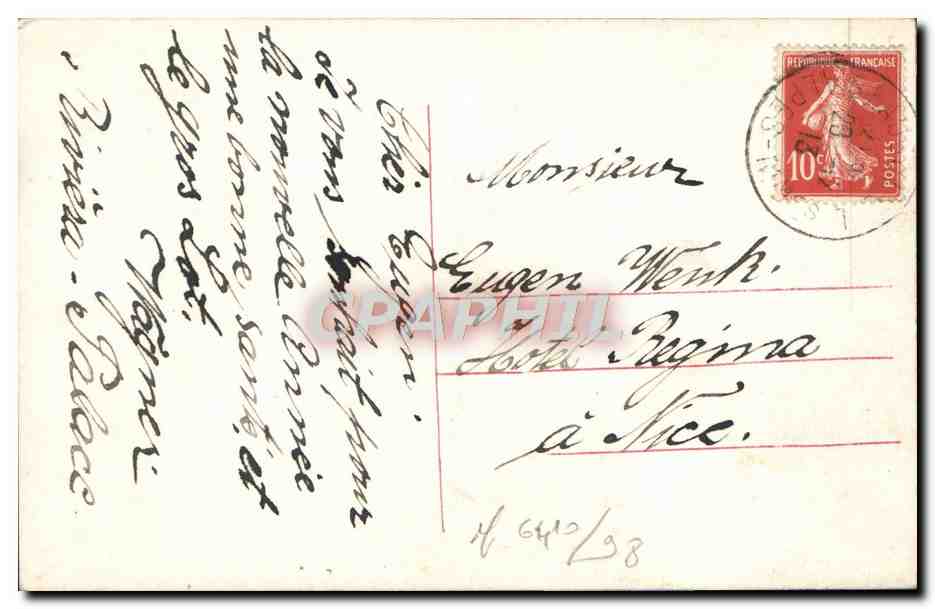 Cher Eugen.
Je vous souhait pour
la nouvelle Année
une bonne santé et
le gros Lot.
Wagner.
Riviera-Palace
Monsieur
Eugen Wenk.
Hotel Regina
à Nice.
REPUBLIQUE FRANÇAISE
10c
POSTES
CPAPHIL
98